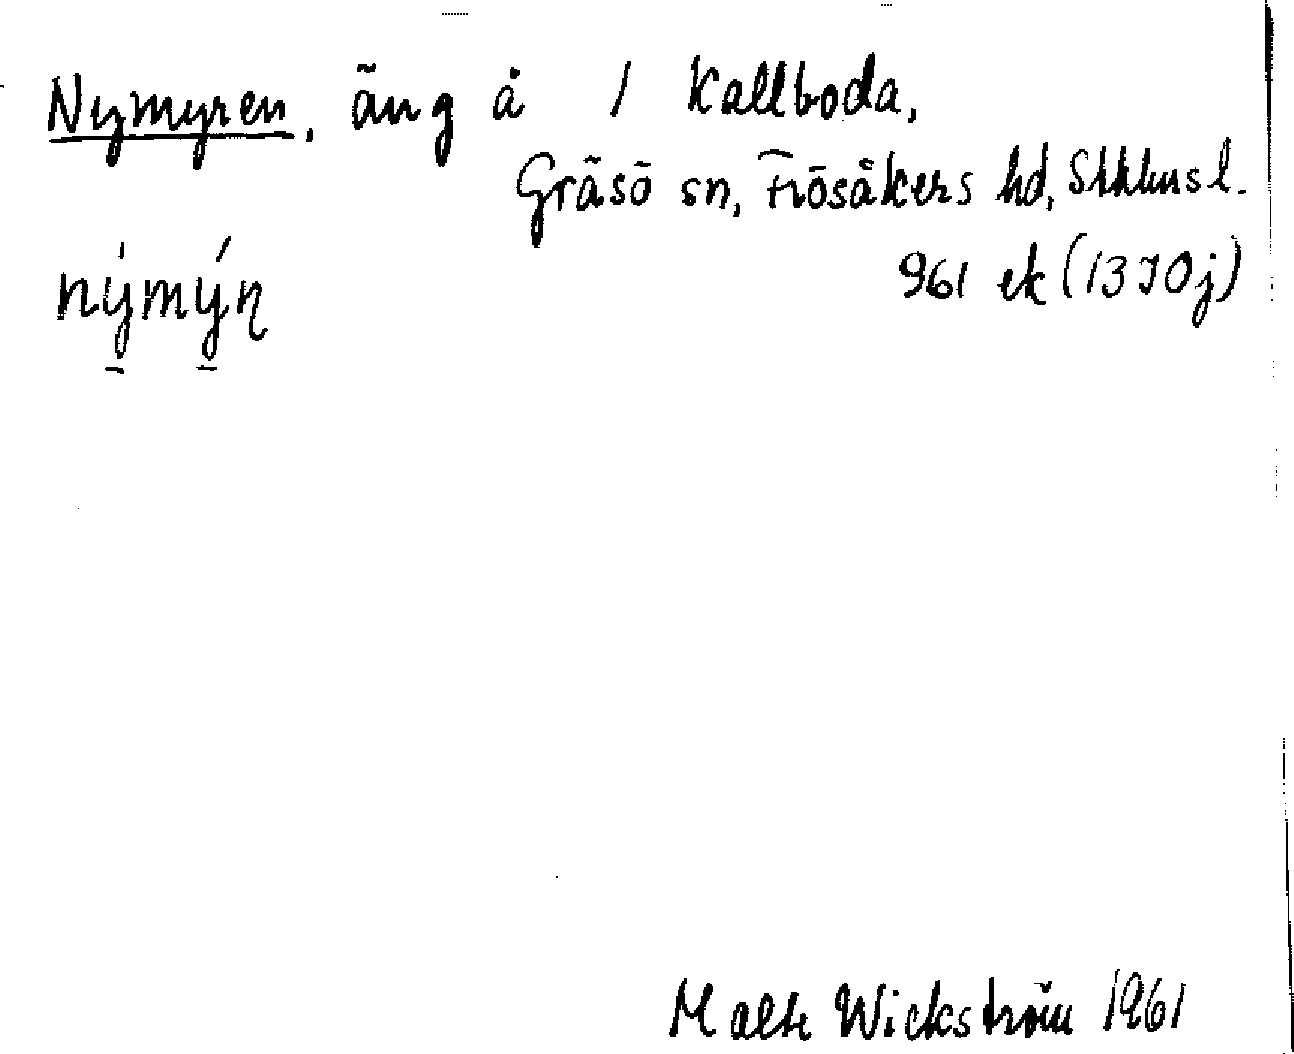 Nymyren, äng å 1 Kallboda,
Gräsö sn, Frösåkers hd, Sthlms l.
961 ek (13 I 0 j)
nýmýɳ
Malte Wickström 1961